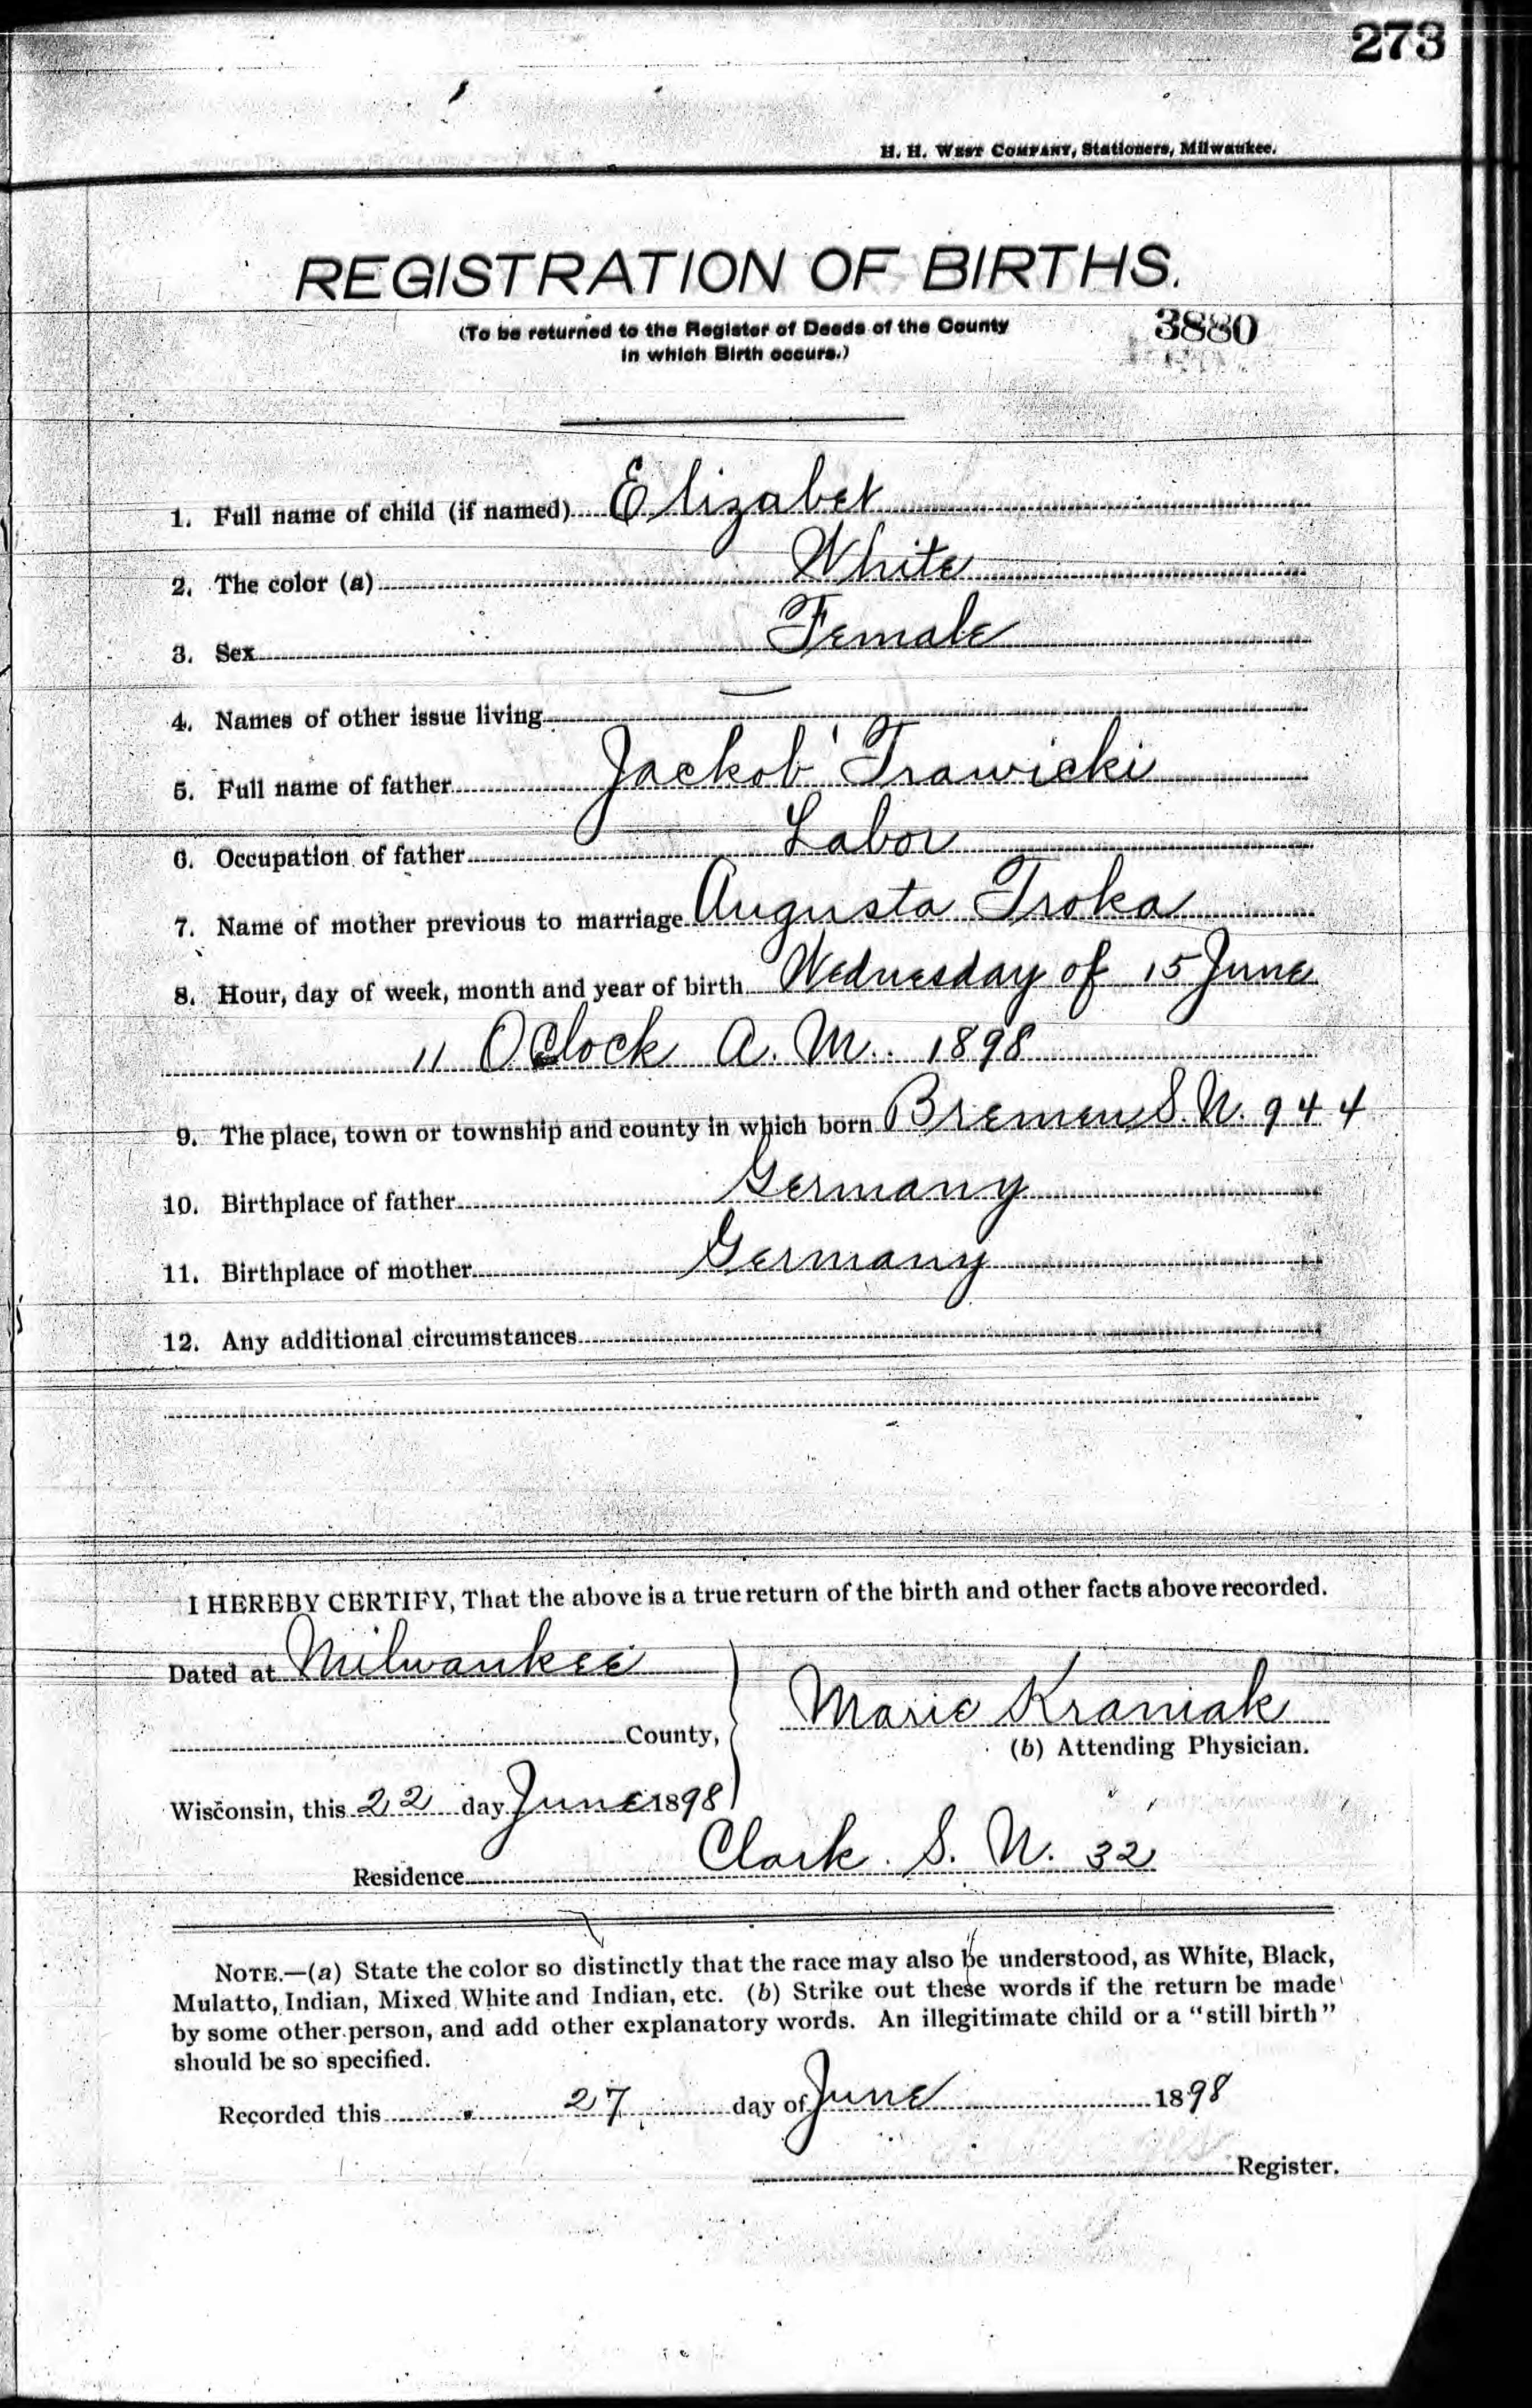 273
H. H. West Company, Stationers, Milwaukee.
REGISTRATION OF BIRTHS.
(To be returned to the Register of Deeds of the County
in which Birth occurs.)
3880
1. Full name of child (if named) Elizabet
2. The color (a) White
3. Sex Female
4. Names of other issue living —
5. Full name of father Jackob Trawicki
6. Occupation of father Labor
7. Name of mother previous to marriage Augusta Troka
8. Hour, day of week, month and year of birth Wednesday of 15 June
11 OClock A. M. 1898
9. The place, town or township and county in which born Bremen S. N. 944
10. Birthplace of father Germany
11. Birthplace of mother Germany
12. Any additional circumstances
I HEREBY CERTIFY, That the above is a true return of the birth and other facts above recorded.
Dated at Milwaukee
County,
Marie Kraniak
(b) Attending Physician.
Wisconsin, this 22 day June 1898
Residence Clark. S. N. 32
NOTE.—(a) State the color so distinctly that the race may also be understood, as White, Black,
Mulatto, Indian, Mixed White and Indian, etc. (b) Strike out these words if the return be made
by some other person, and add other explanatory words. An illegitimate child or a "still birth"
should be so specified.
Recorded this 27 day of June 1898
Register.